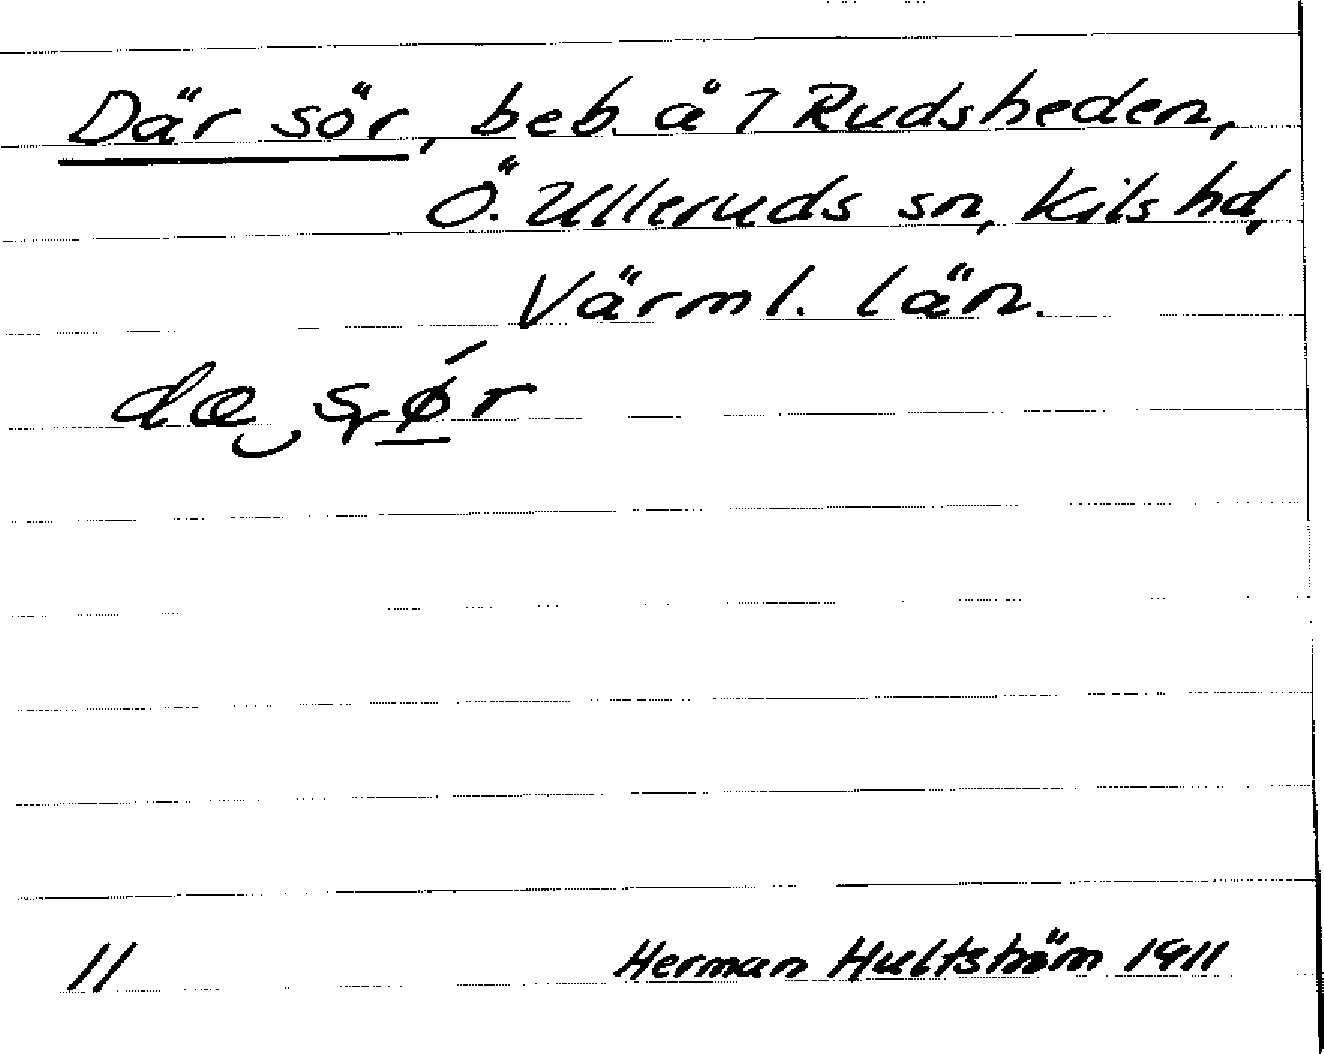 Där sör, beb. å 7 Rudsheden,
Ö. Ulleruds sn, Kils hd,
Värml. län.
dæ‿ sǿr
11 Herman Hultström 1911